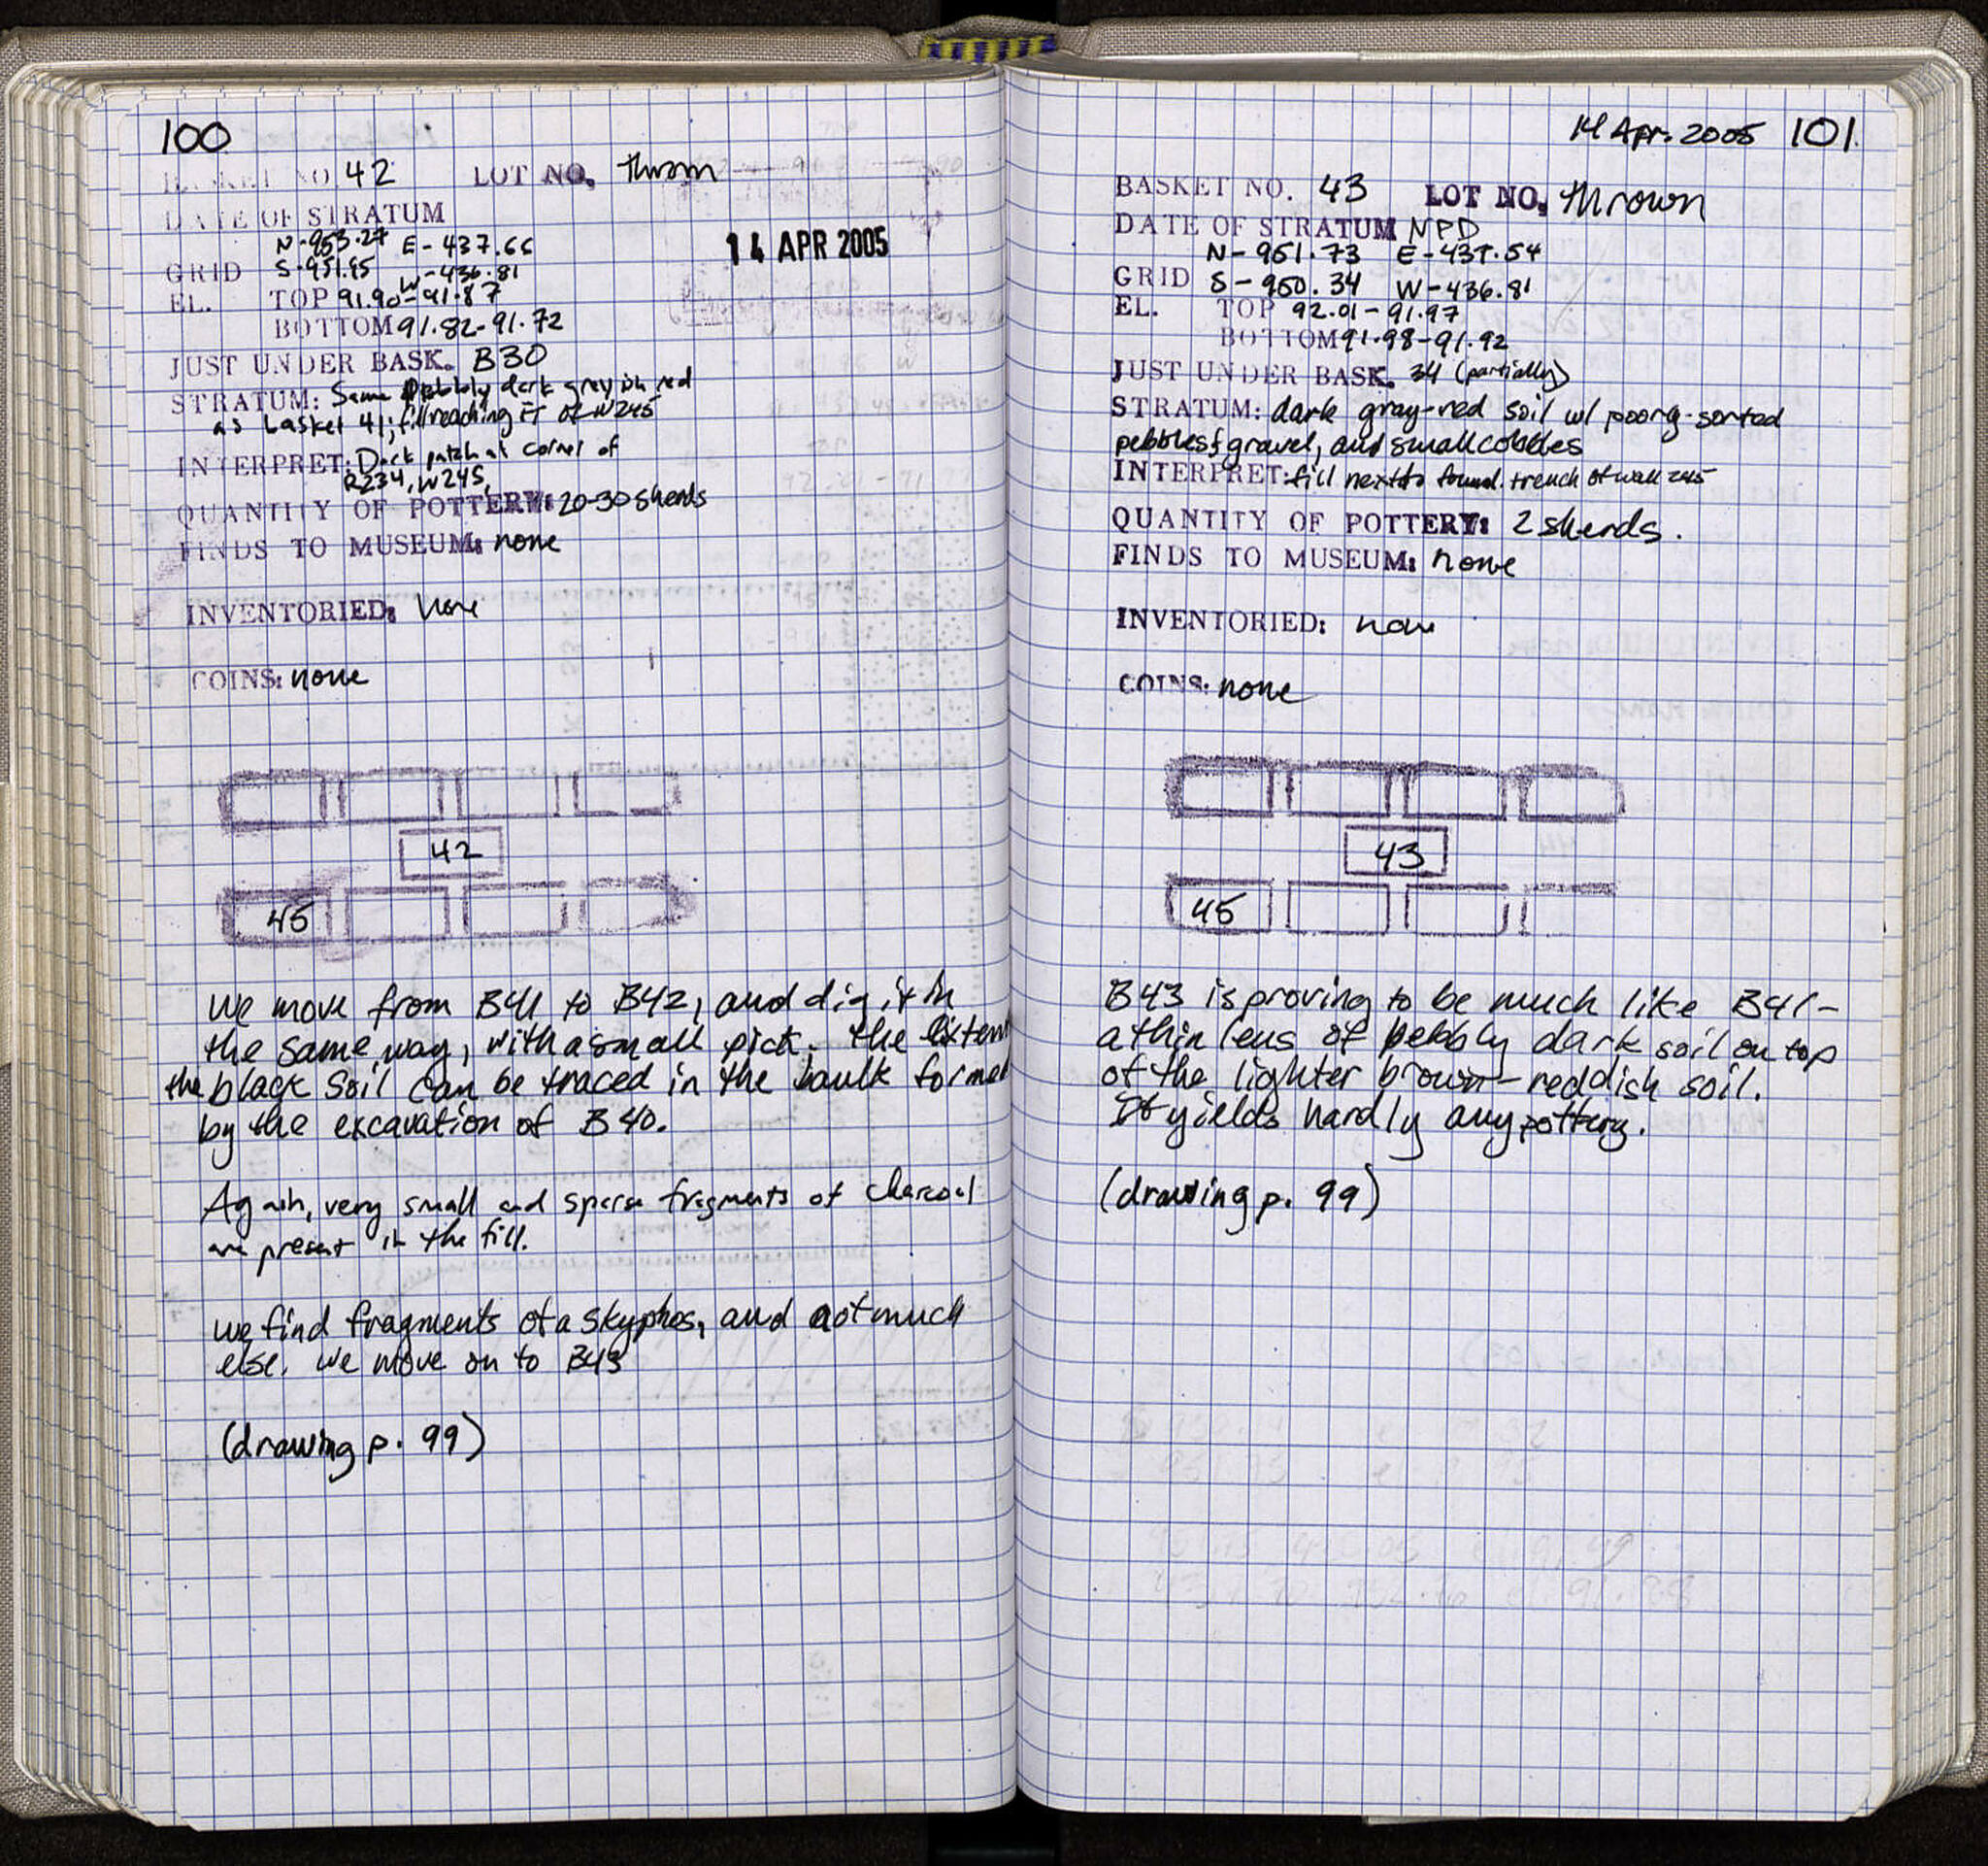 100
BASKET NO 42 LOT NO. thrown
DATE OF STRATUM
14 APR 2005
N-953.27 E-437.66
GRID S-951.95 W-436.81
EL. TOP 91.90-91.87
BOTTOM 91.82-91.72
JUST UNDER BASK. B30
STRATUM: Same pebbly dark greyish red
as basket 41; fill reaching FT of W245
INTERPRET: Dark patch at corner of
R234, W245,
QUANTITY OF POTTERY: 20-30 sherds
FINDS TO MUSEUM: none
INVENTORIED: none
COINS: none
42
45
We move from B41 to B42, and dig it in
the same way, with a small pick. The extent
the black soil can be traced in the baulk formed
by the excavation of B40.
Again, very small and sparse fragments of charcoal
are present in the fill.
We find fragments of a skyphos, and not much
else. We move on to B43
(drawing p. 99)
14 Apr. 2005 101
BASKET NO. 43 LOT NO. thrown
DATE OF STRATUM NPD
N-951.73 E-437.54
GRID S-950.34 W-436.81
EL. TOP 92.01-91.97
BOTTOM 91.98-91.92
JUST UNDER BASK. 34 (partially)
STRATUM: dark gray-red soil w/ poorly-sorted
pebbles & gravel, and small cobbles
INTERPRET: fill next to found. trench of wall 245
QUANTITY OF POTTERY: 2 sherds.
FINDS TO MUSEUM: none
INVENTORIED: none
COINS: none
43
45
B43 is proving to be much like B41-
a thin lens of pebbly dark soil on top
of the lighter brown-reddish soil.
It yields hardly any pottery.
(drawing p. 99)